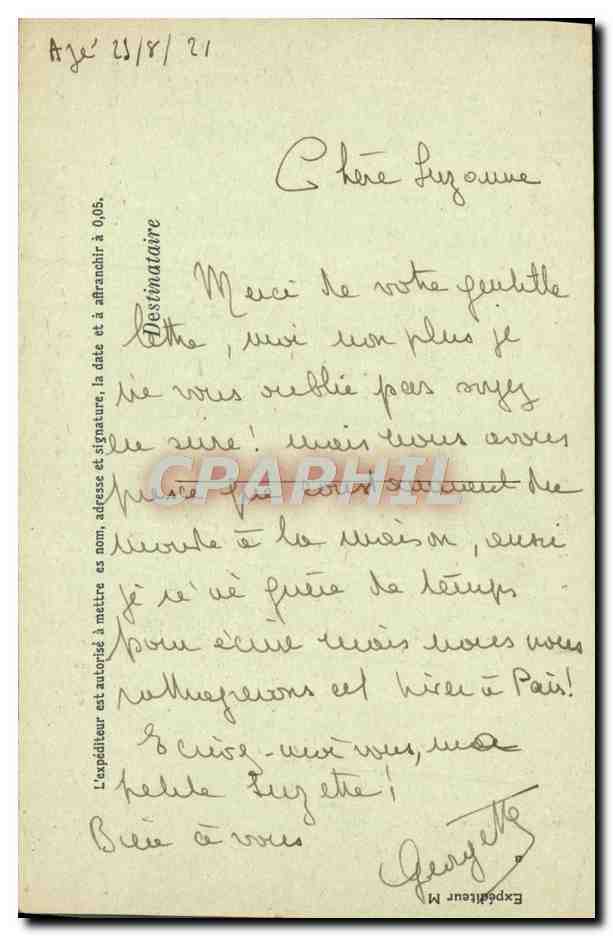 Azé 25/8/21
Chère Suzanne
Merci de votre gentille
lettre, moi non plus je
ne vous oublie pas soyez
en sure! mais nous avons
presque constamment du
monde à la maison, aussi
je n'ai guère de temps
pour écrire mais nous nous
rattraperons cet hiver à Paris!
Ecrivez-moi vous, ma
petite Suzette!
Bien à vous
Georgette
Destinataire
L'expéditeur est autorisé à mettre es nom, adresse et signature, la date et à affranchir à 0,05.
Expéditeur M
CPAPHIL